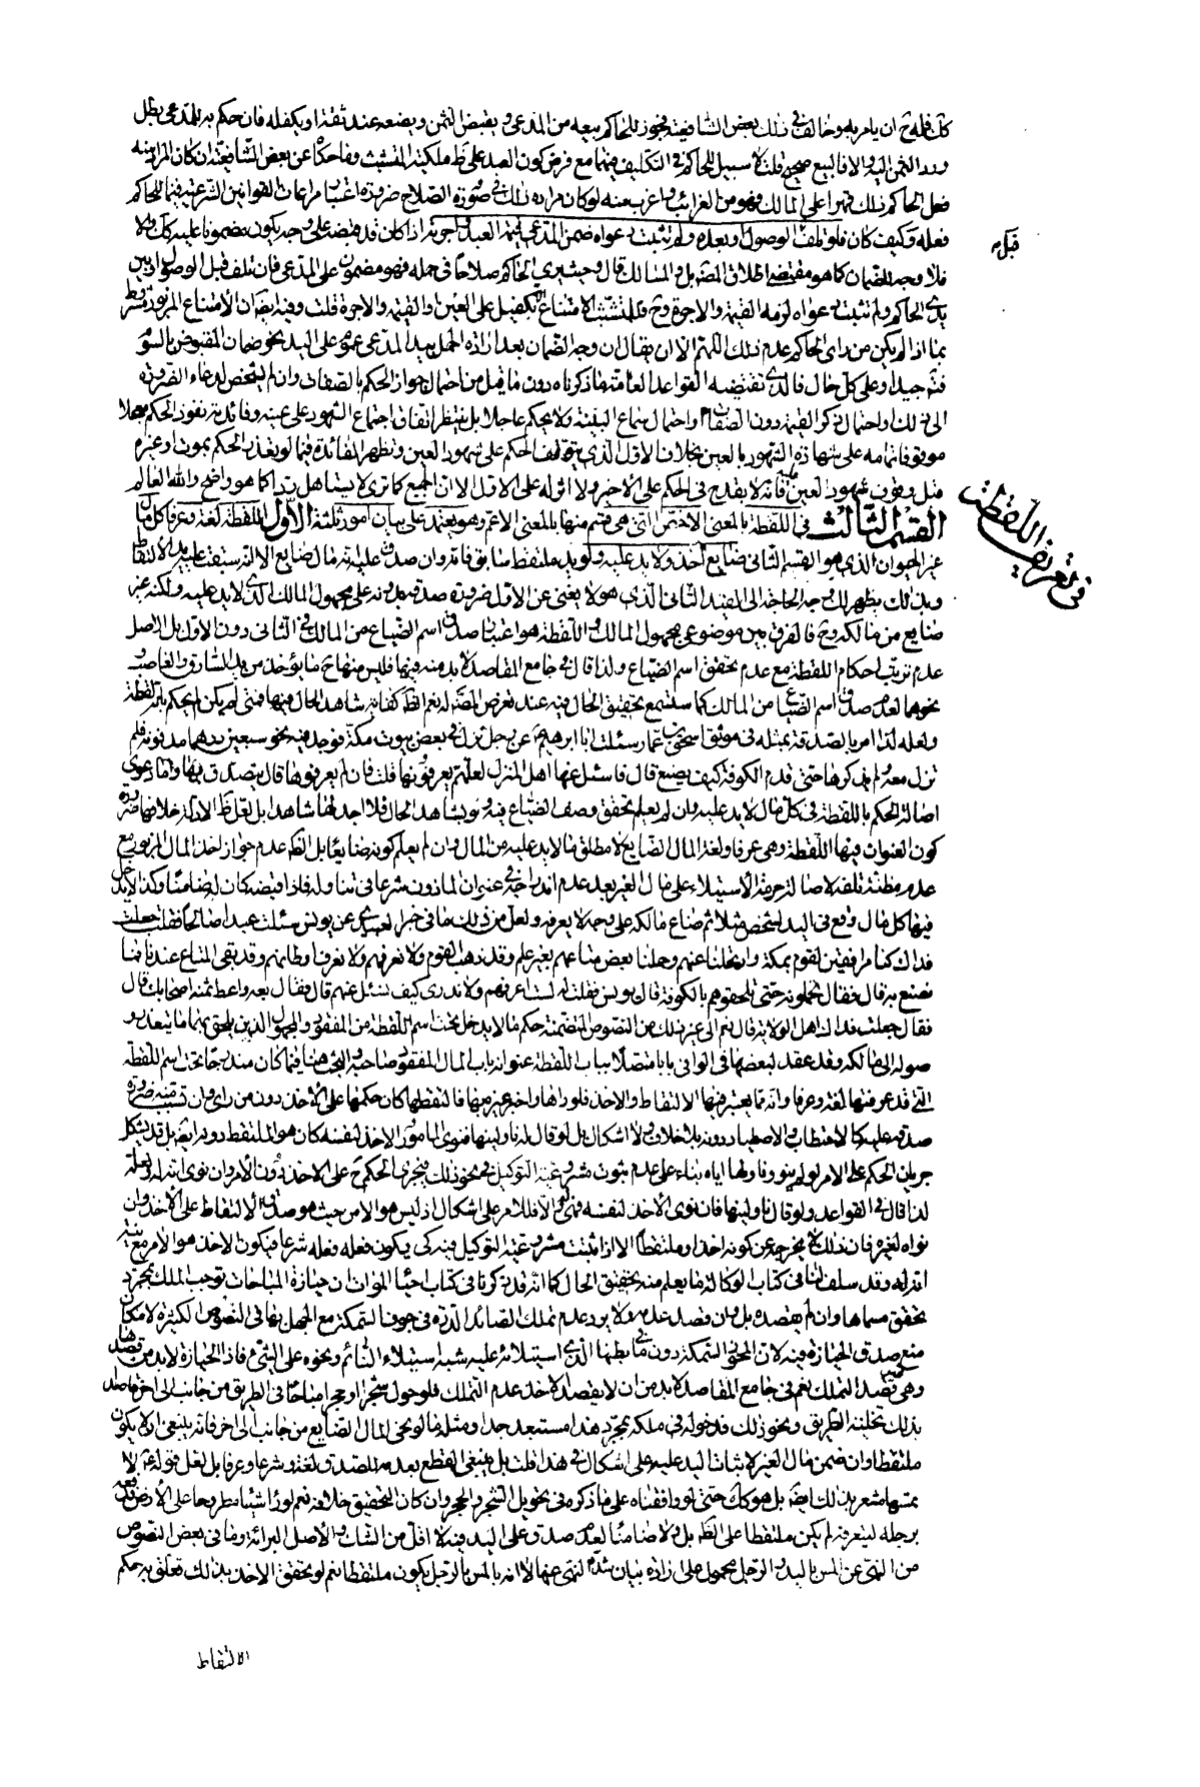 كل فله ح ان يامر به وخالف في ذلك بعض الشافعية فجوز للحاكم بيعه من المدعي ويقبض الثمن ويضعه عند ثقة او يكفله فان حكم به للمدعي بطل
ورد الثمن اليه والا فالبيع صحيح قلت لا سبيل للحاكم في التكليف فيهما مع فرض كون العبد على ملكية المتشبث وما حكاه عن بعض الشافعية ان كان المراد منه
فعل الحاكم ذلك قهرا على المالك فهو من الغرائب واغرب منه لو كان مراده ذلك في صورة الصلاح ضرورة اعتبار مراعات القوانين الشرعية فيما للحاكم
فعله وكيف كان فلو تلف قبل الوصول او بعده ولم تثبت دعواه ضمن المدعي قيمة العبد واجرته اذا كان قد قبضه على وجه يكون مضمونا عليه كل والا
قبل
فلا وجه للضمان كما هو مقتضى اطلاق المصنف بل في المسالك قال وحيث يرى الحاكم صلاحا في حمله فهو مضمون على المدعي فان تلف قبل الوصول او بين
يدي الحاكم ولم تثبت دعواه لزمه القيمة والاجرة وح فللمتشبث الامتناع التكفيل على العين والقيمة والاجرة قلت وفيه ايضا ان الامتناع المزبور مشروط
بما اذا لم يكن من راي الحاكم عدم ذلك اللهم الا ان يقال ان وجه الضمان بعد ارادة الحمل بيد المدعي عموم على اليد نحو ضمان المقبوض بالسوم
فتم جيدا وعلى كل حال فالذي تقتضيه القواعد العامة ما ذكرناه دون ما قيل من احتمال جواز الحكم بالصفات وان لم يشخص لدعاء الضرورة
الى ذلك واحتمال ذكر القيمة دون الصفات او احتمال سماع البينة ولا يحكم عاجلا بل ينتظر اتفاق اجتماع الشهود على عينه وفائدته نفوذ الحكم معجلا
موقوفا تمامه على شهادة الشهود بالعين بخلاف الاول الذي يتوقف الحكم على شهود العين وتظهر الفائدة فيما لو تعذر الحكم بموت او غيره
قبل وقوف شهود العين عليه فانه لا يقدح في الحكم على الاخير ولا اثر له على الاول الا ان الجميع كما ترى لا يستاهل ردا كما هو واضح والله العالم
القسم الثالث في اللقطة بالمعنى الاخص التي هي قسم منها بالمعنى الاعم وهو يعتمد على بيان امور ثلثة الاول اللقطة لغة وعرفا كل مال
في تعريف اللقطة
غير الحيوان الذي هو القسم الثاني ضايع اخذ ولا يد عليه ولو يد ملتقط سابق فانه وان صدق عليه انه مال ضايع الا انه سبقت عليه يد الالتقاط
وبذلك يظهر لك وجه الحاجة الى القيد الثاني الذي هو لا يغني عن الاول ضرورة صدقه بدونه على مجهول المالك الذي لا يد عليه ولكنه غير
ضايع من مالكه وح فالفرق بين موضوعي مجهول المالك واللقطة هو اعتبار صدق اسم الضياع من المالك في الثاني دون الاول بل الاصل
عدم ترتب احكام اللقطة مع عدم تحقق اسم الضياع ولذا قال في جامع المقاصد لا بد منه فيها فليس منها ح ما يؤخذ من يد السارق والغاصب
ونحوهما لعدم صدق اسم الضياع من المالك كما ستسمع تحقيق الحال فيه عند تعرض المصنف له نعم الظ كفاية شاهد الحال فيها فمتى لم يكن لم يحكم بانه لقطة
ولعله لذا امر بالصدقة بمثله في موثق اسحق بن عمار سئلت ابا ابراهيم عن رجل نزل في بعض بيوت مكة فوجد فيه نحو سبعين درهما مدفونة فلم
تزل معه ولم يذكرها حتى قدم الكوفة كيف يصنع قال فاسئل عنها اهل المنزل لعلهم يعرفونها قلت فان لم يعرفوها قال يتصدق بها واما دعوى
اصالة الحكم باللقطة في كل مال لا يد عليه وان لم يعلم تحقق وصف الضياع فيه ولو بشاهد الحال فلا اجد لها شاهدا بل لعل ظ الادلة خلافها ضرورة
كون العنوان فيها اللقطة وهي عرفا ولغة المال الضايع لا مطلق ما لا يد عليه من المال وان لم يعلم كونه ضايعا بل الظ عدم جواز اخذ المال المزبور مع
عدم مظنة تلفه لاصالة حرمة الاستيلاء على مال الغير بعد عدم اندراجه في عنوان الماذون شرعا في تناوله فاذا قبضه كان له ضامنا وكذا لا يدخل
فيها كل مال وقع في اليد لشخص مثلا ثم ضاع مالكه على وجه لا يعرفه ولعل من ذلك ما في خبر العبيدي عن يونس سئلت عبدا صالحا فقلت جعلت
فداك كنا مرافقين لقوم بمكة وارتحلنا عنهم وحملنا بعض متاعهم بغير علم وقد ذهب القوم ولا نعرفهم ولا نعرف اوطانهم وقد بقي المتاع عندنا فما
نصنع به قال فقال تحملونه حتى تلحقوهم بالكوفة قال يونس فقلت له لست اعرفهم ولا ندري كيف نسئل عنهم قال فقال بعه واعط ثمنه اصحابك قال
فقال جعلت فداك اهل الولاية قال نعم الى غير ذلك من النصوص المتضمنة حكم ما لا يدخل تحت اسم اللقطة من المفقود والمجهول الذين يلحق بهما ما يتعذر
صوله الى مالكه وقد عقد لبعضها في الوافي بابا متصلا بباب اللقطة عنوانه باب المال المفقود صاحبه والبحث هنا فيما كان مندرجا تحت اسم اللقطة
التي قد عرفتها لغة وعرفا وانه مما يعتبر فيها الالتقاط والاخذ فلو راها واخبر غيره بها فالتقطها كان حكمها على الاخذ دون من راى وان تسبب منه ضرورة
صدقه عليه كالاحتطاب والاصطياد دونه بلا خلاف ولا اشكال بل لو قال له ناولنيها فنوى المامور الاخذ لنفسه كان هو الملتقط دونه ايضا بل قد يشكل
جريان الحكم على الامر لو لم ينو وناولها اياه بناء على عدم ثبوت مشروعية التوكيل في نحو ذلك فيجري الحكم ح على الاخذ دون الامر وان نوى انه له ولعله
لذا قال في القواعد ولو قال ناولنيها فان نوى الاخذ لنفسه فهي له والا فللامر على اشكال اذ ليس هو الا من حيث هو صدق الالتقاط على الاخذ وان
نواه لغيره فان ذلك لا يخرجه عن كونه اخذا وملتقطا الا اذا ثبتت مشروعية التوكيل فيه كي يكون فعله فعله شرعا فيكون الاخذ هو الامر مع نيته
انه له وقد سلف لنا في كتاب الوكالة ما يعلم منه تحقيق الحال كما انه قد ذكرنا في كتاب احياء الموات ان حيازة المباحات توجب الملك بمجرد
تحقق مسماها وان لم يقصده بل وان قصد عدمه ولا يرد عدم تملك الصائد الدرة في جوف السمكة مع الجهل بها في النصوص الكثيرة لامكان
منع صدق الحيازة فيه لان المحوز السمكة دون ما في بطنها الذي استيلائه عليه شبه استيلاء النائم ونحوه على الشيء فاذ الحيازة لا بد من قصدها
وهي غير قصد التملك نعم في جامع المقاصد لا بد من ان لا يقصد بالاخذ عدم التملك فلو حول شجرا او حجرا مباحا في الطريق من جانب الى اخر قاصدا
بذلك تخلية الطريق ونحو ذلك فدخوله في ملكه بمجرد هذا مستبعد جدا ومثله ما لو نحى المال الضايع من جانب الى اخر فانه ينبغي ان لا يكون
ملتقطا وان ضمن مال الغير لاثبات اليد عليه على اشكال في هذا قلت بل ينبغي القطع بعدمه للصدق لغة وشرعا وعرفا بل لعل قوله لا
يمسها مشعر بذلك ايضا بل هو كك حتى لو وافقناه على ما ذكره في تحويل الشجر والحجر وان كان التحقيق خلافه نعم لو راى شيئا مطروحا على الارض فدفعه
برجله ليتعرفه لم يكن ملتقطا على الظ بل ولا ضامنا لعدم صدق على اليد فيه ولا اقل من الشك والاصل البرائة وما في بعض النصوص
من النهي عن المس باليد والرجل محمول على ارادة بيان شدة النهي عنها لا انه بالمس بالرجل يكون ملتقطا نعم لو تحقق الاخذ بذلك تعلق به حكم
الالتقاط